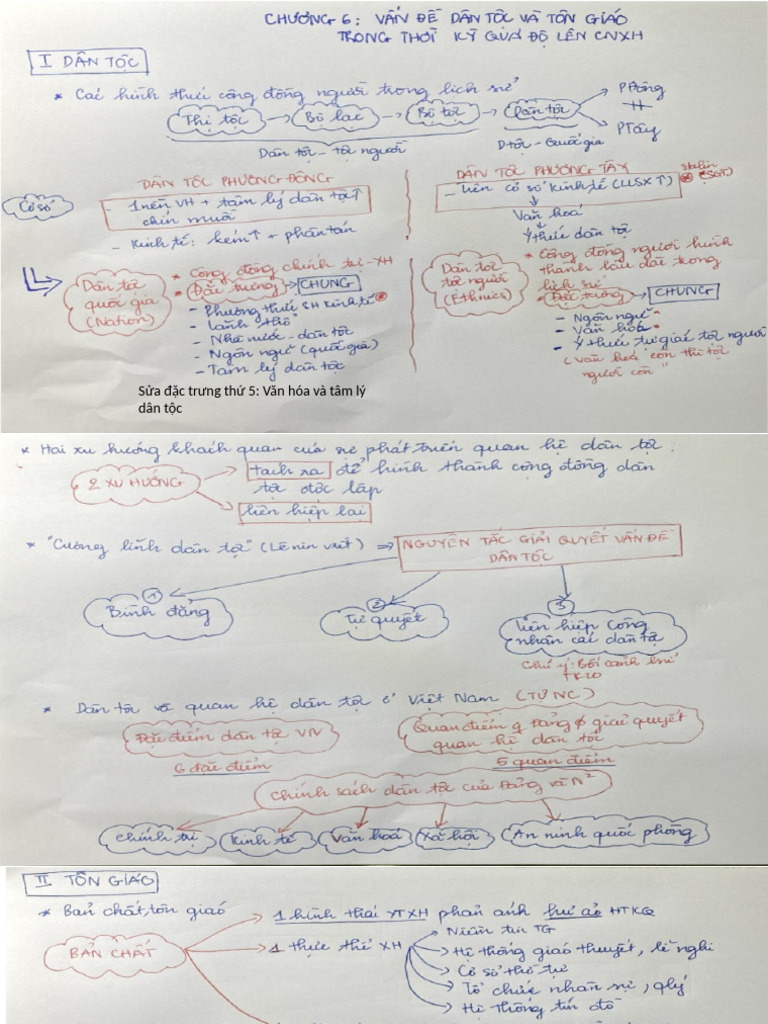 CHƯƠNG 6: VẤN ĐỀ DÂN TỘC VÀ TÔN GIÁO
TRONG THỜI KỲ QUÁ ĐỘ LÊN CNXH
I DÂN TỘC
* Các hình thức cộng đồng người trong lịch sử
Thị tộc → Bộ lạc → Bộ tộc → Dân tộc
PĐông
PTây
Dân tộc - tộc người
Dtộc - Quốc gia
DÂN TỘC PHƯƠNG ĐÔNG
DÂN TỘC PHƯƠNG TÂY
Stalin
Cơ sở
- 1 nền VH + tâm lý dân tộc↑
chín muồi
- Kinh tế: kém↑ + phân tán
- Trên cơ sở kinh tế (LLSX↑)
Văn hoá
Ý thức dân tộc
Dân tộc
quốc gia
(Nation)
* Cộng đồng chính trị - XH
* Đặc trưng → CHUNG
- Phương thức SH kinh tế
- Lãnh thổ
- Nhà nước - dân tộc
- Ngôn ngữ (quốc gia)
- Tâm lý dân tộc
Dân tộc
tộc người
(Ethnics)
* Cộng đồng người hình
thành lâu dài trong
lịch sử
* Đặc trưng → CHUNG
- Ngôn ngữ
- Văn hóa
- Ý thức tự giác tộc người
(Văn hoá còn thì tộc
người còn"
Sửa đặc trưng thứ 5: Văn hóa và tâm lý
dân tộc
* Hai xu hướng khách quan của sự phát triển quan hệ dân tộc
2 XU HƯỚNG
tách ra để hình thành cộng đồng dân
tộc độc lập
liên hiệp lại
* "Cương lĩnh dân tộc" (Lênin viết) ⇒ NGUYÊN TẮC GIẢI QUYẾT VẤN ĐỀ
DÂN TỘC
1 Bình đẳng
2 Tự quyết
3 Liên hiệp công
nhân các dân tộc
Chú ý: Bối cảnh
TK20
* Dân tộc và quan hệ dân tộc ở Việt Nam (TỰ NC)
Đặc điểm dân tộc VN
6 đặc điểm
Quan điểm giải quyết
quan hệ dân tộc
5 quan điểm
Chính sách dân tộc của Đảng và N²
Chính trị
Kinh tế
Văn hoá
Xã hội
An ninh quốc phòng
II TÔN GIÁO
* Bản chất tôn giáo
BẢN CHẤT
1 hình thái YTXH phản ánh hư ảo HTKQ
1 thực thể XH
Niềm tin TG
Hệ thống giáo thuyết, lễ nghi
Cơ sở thờ tự
Tổ chức nhân sự, qlý
Hệ thống tín đồ